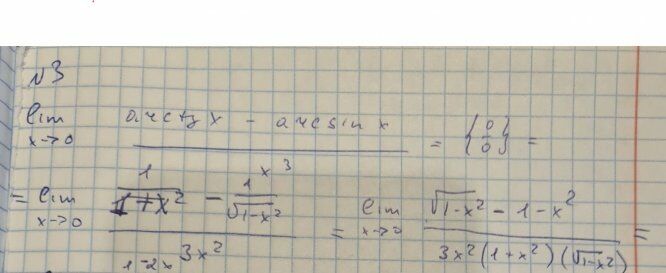 №3
lim x→0 (arctg x - arcsin x) / x^3 = {0/0} =
= lim x→0 (1/(1+x^2) - 1/√(1-x^2)) / 3x^2 = lim x→0 (√(1-x^2) - 1 - x^2) / (3x^2(1+x^2)(√(1-x^2))) =
1-2x